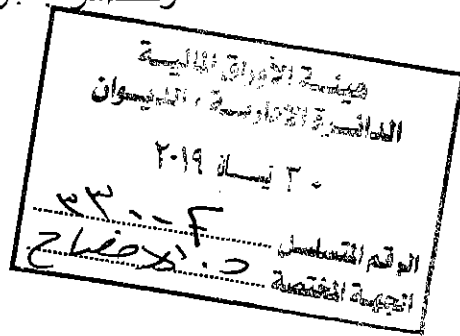 هيئة الأوراق المالية
الدائرة الادارية ، الديوان
٣٠ نيسان ٢٠١٩
الرقم المتسلسل
الجهة المختصة د. الافصاح